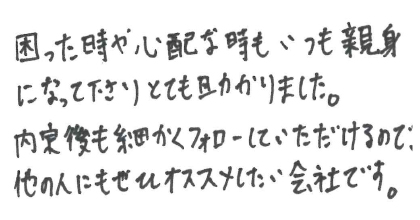 困った時や心配な時もいつも親身
になって下さりとても助かりました。
内定後も細かくフォローしていただけるので、
他の人にもぜひオススメしたい会社です。